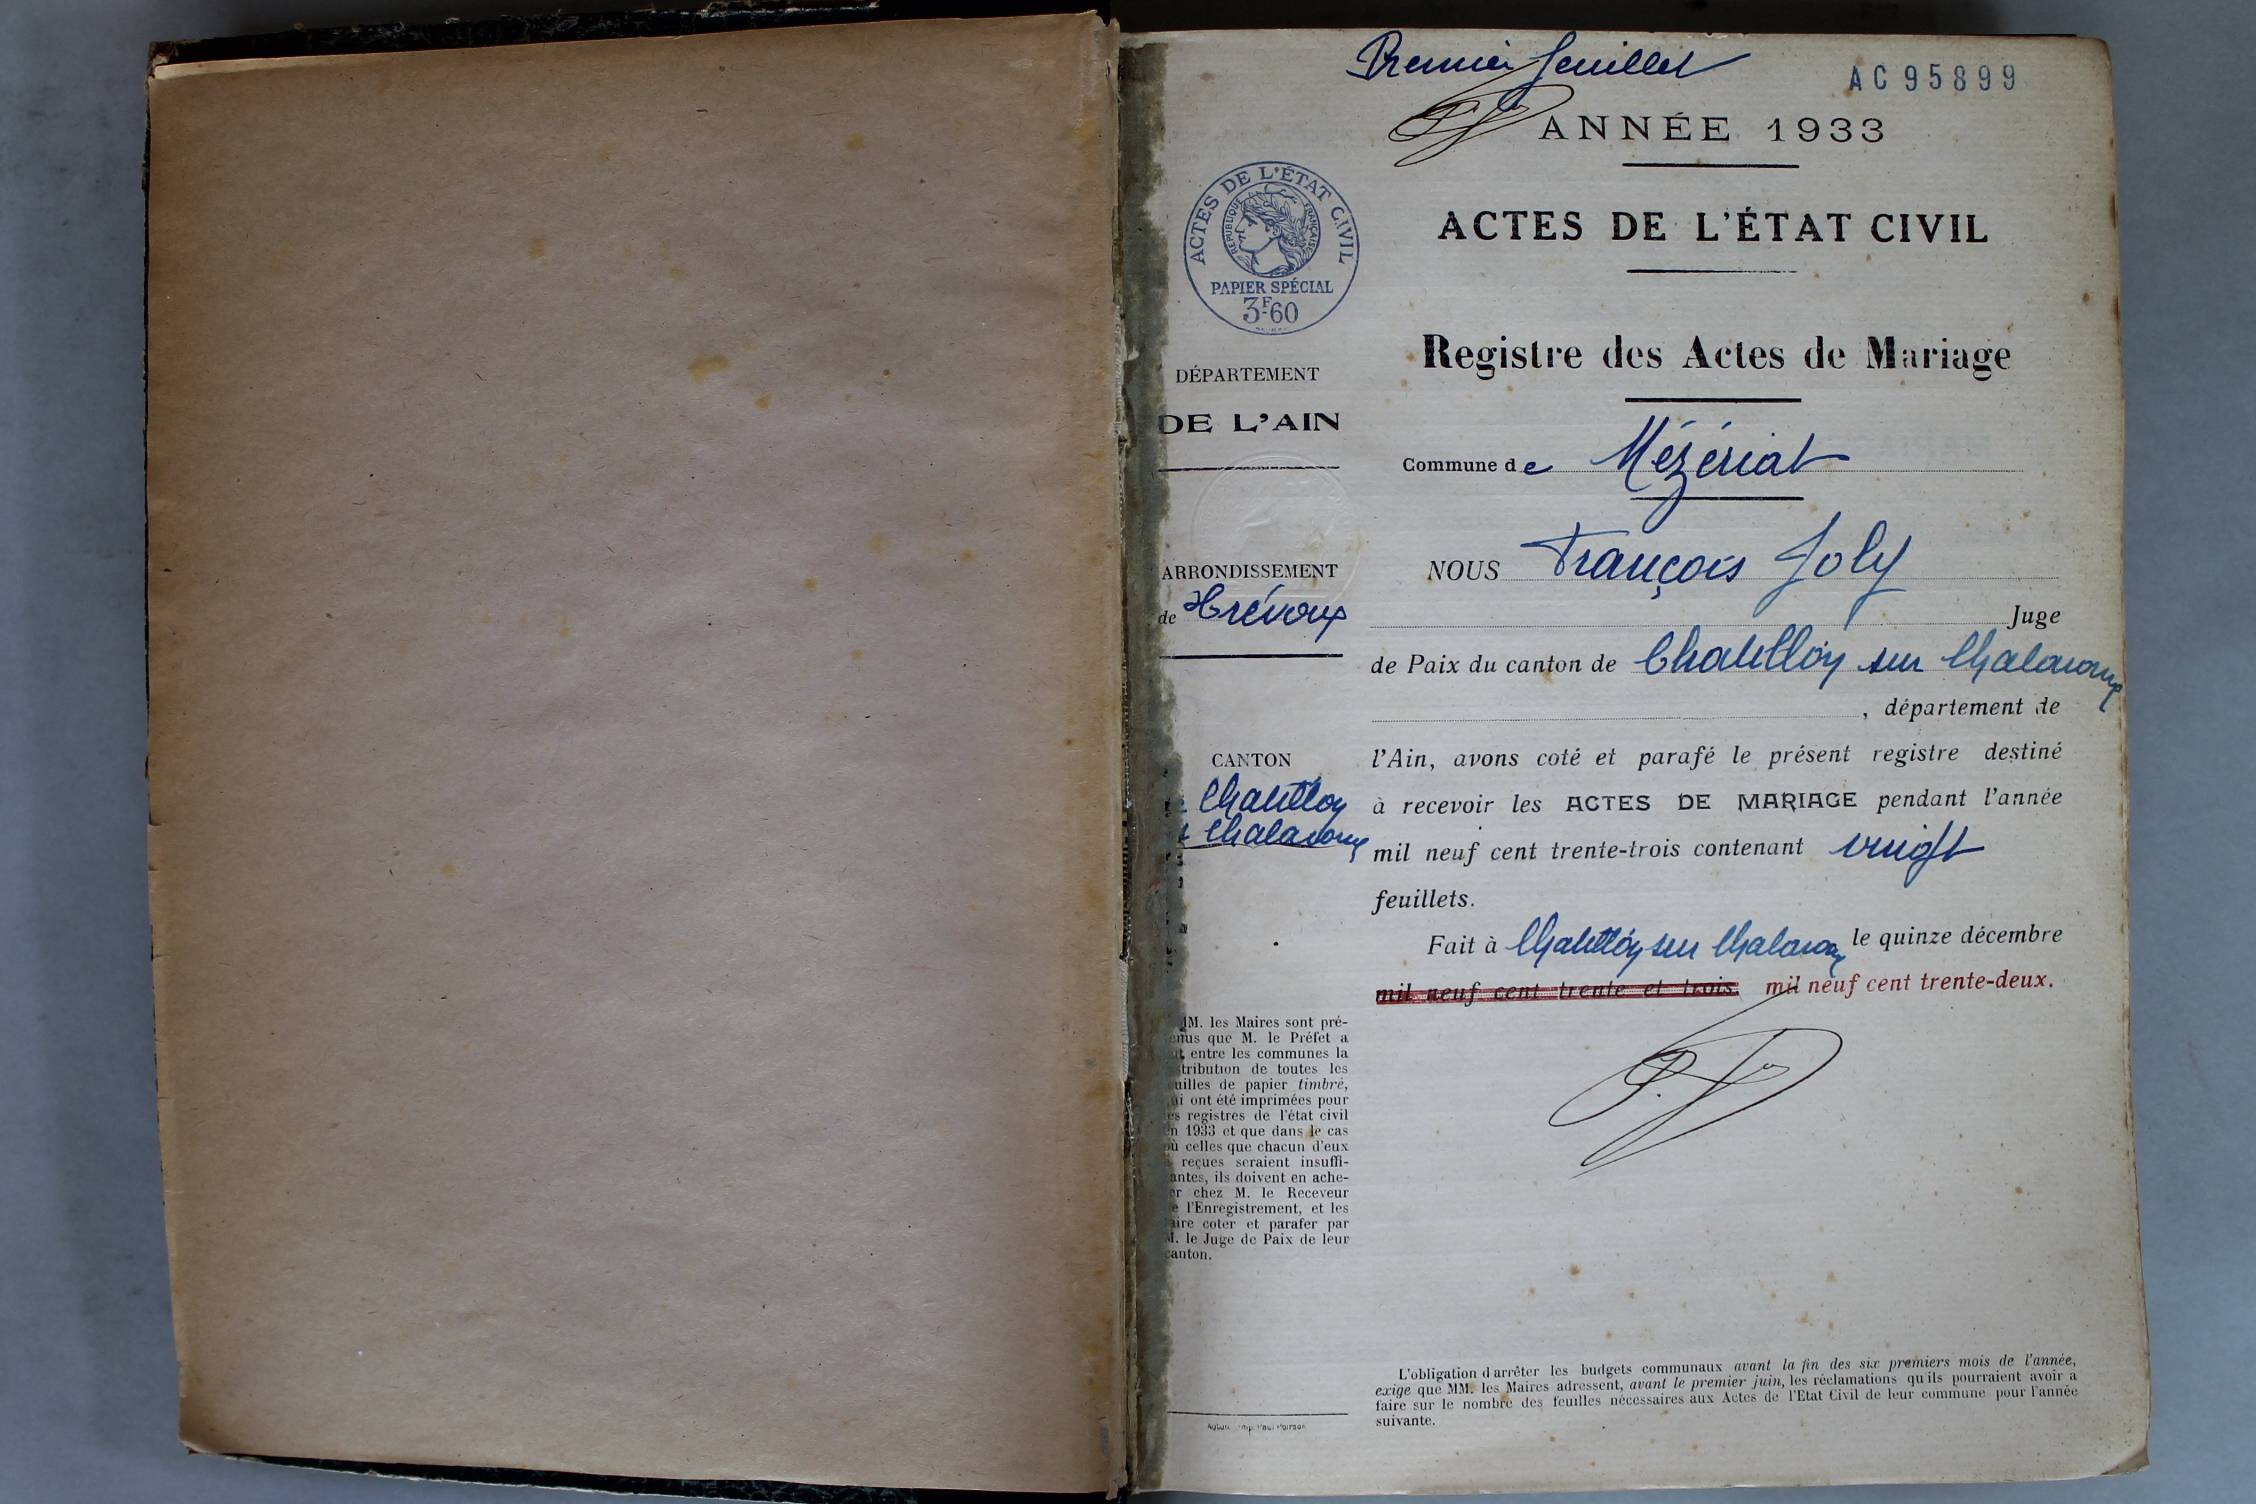 Premier feuillet
AC 95899
ANNÉE 1933
ACTES DE L'ÉTAT CIVIL
RÉPUBLIQUE FRANÇAISE
PAPIER SPÉCIAL
3F60
ACTES DE L'ÉTAT CIVIL
Registre des Actes de Mariage
DÉPARTEMENT
DE L'AIN
Commune de Mézériat
ARRONDISSEMENT
de Trévoux
NOUS François Joly
Juge
de Paix du canton de Chatillon sur Chalaronne
, département de
CANTON
Chatillon
Chalaronne
l'Ain, avons coté et parafé le présent registre destiné
à recevoir les ACTES DE MARIAGE pendant l'année
mil neuf cent trente-trois contenant vingt
feuillets.
Fait à Chatillon sur Chalaronne le quinze décembre
mil neuf cent trente et trois. mil neuf cent trente-deux.
MM. les Maires sont pré-
enus que M. le Préfet a
it entre les communes la
tribution de toutes les
uilles de papier timbré,
ui ont été imprimées pour
es registres de l'état civil
n 1933 et que dans le cas
ù celles que chacun d'eux
reçues seraient insuffi-
antes, ils doivent en ache-
er chez M. le Receveur
e l'Enregistrement, et les
aire coter et parafer par
M. le Juge de Paix de leur
canton.
L'obligation d'arrêter les budgets communaux avant la fin des six premiers mois de l'année,
exige que MM. les Maires adressent, avant le premier juin, les réclamations qu'ils pourraient avoir à
faire sur le nombre des feuilles nécessaires aux Actes de l'Etat Civil de leur commune pour l'année
suivante.